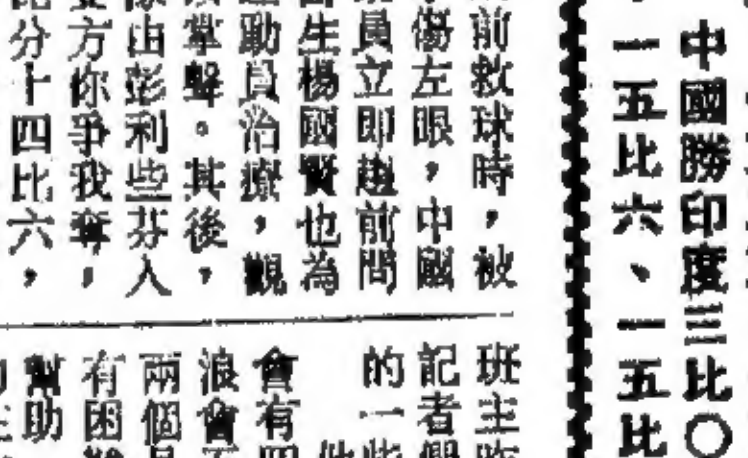 中國勝印度三比〇
一五比六、一五比
前救球時，被
傷左眼，中國
員立即趨前問
生楊國賢也為
動員治療，觀
掌聲。其後，
由彭利些芬入
方你爭我奪，
分十四比六，
班主昨
記者假
的一些
他
會有四
浪會不
兩個月
有困難
幫助